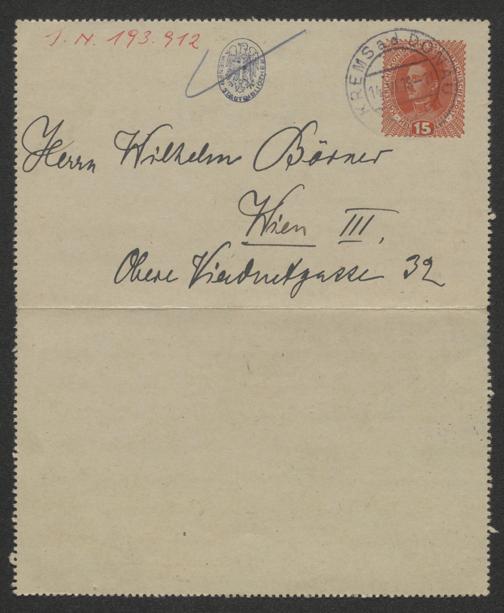 I. N. 193.912
KREMS a.d. DONAU
15
Herrn Wilhelm Börner
Wien III,
Obere Viaductgasse 32